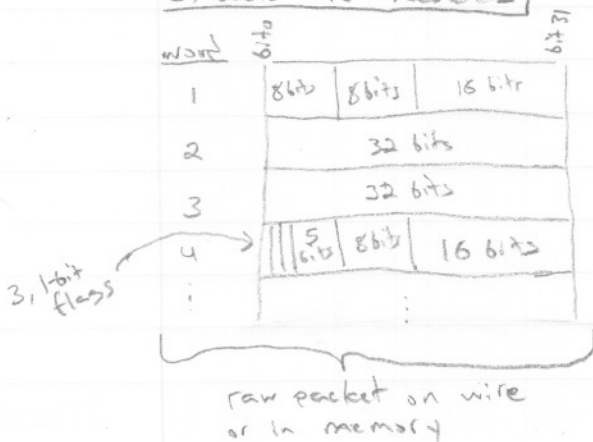 word
bit 0
bit 31
1
8 bits
8 bits
16 bits
2
32 bits
3
32 bits
4
5 bits
8 bits
16 bits
3, 1-bit
flags
⋮
⋮
raw packet on wire
or in memory